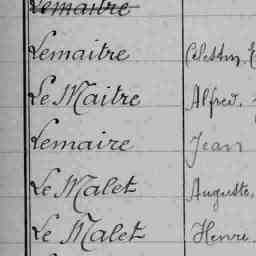 Lemaitre
Lemaitre Celestin
Le Maitre Alfred.
Lemaire Jean
Le Malet Auguste.
Le Malet Henre.